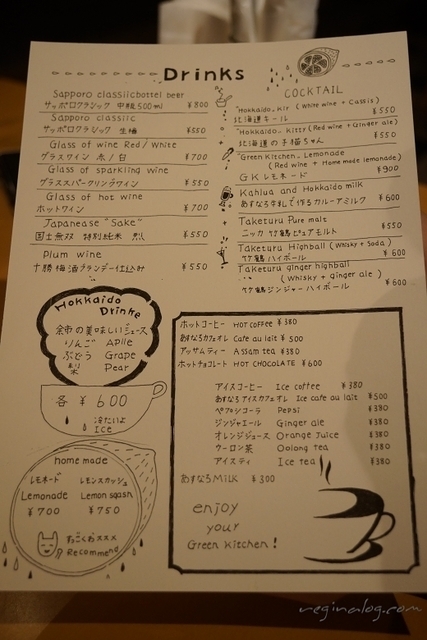 Drinks
Sapporo classiicbottel beer
サッポロクラシック 中瓶500ml ¥800
Sapporo classiic
サッポロクラシック 生樽 ¥550
Glass of wine Red / White
グラスワイン 赤/白 ¥700
Glass of sparkling wine
グラススパークリングワイン ¥550
Glass of hot wine
ホットワイン ¥700
Japanease "Sake"
国士無双 特別純米 烈 ¥550
Plum wine
十勝梅酒ブランデー仕込み ¥550
COCKTAIL
"Hokkaido" Kir (White wine + Cassis)
北海道キール ¥550
"Hokkaido" Kitty (Red wine + Ginger ale)
北海道の子猫ちゃん ¥550
"Green Kitchen" Lemonade
(Red wine + Home made lemonade)
GKレモネード ¥900
Kahlua and Hokkaido milk
あすなろ牛乳で作るカルーアミルク ¥600
Taketuru Pure malt
ニッカ 竹鶴ピュアモルト ¥550
Taketuru Highball (Whisky + Soda)
竹鶴ハイボール ¥600
Taketuru ginger highball
(Whisky + ginger ale)
竹鶴ジンジャーハイボール ¥600
Hokkaido
Drinke
余市の美味しいジュース
りんご Aplle
ぶどう Grape
梨 Pear
各 ¥600
冷たいよ
ICE
home made
レモネード レモンスカッシュ
Lemonade Lemon sqash
¥700 ¥750
すっごくおススメ
Recommend
ホットコーヒー HOT COFFEE ¥380
あすなろカフェオレ Cafe au lait ¥500
アッサムティー Assam tea ¥380
ホットチョコレート HOT CHOCOLATE ¥600
アイスコーヒー Ice coffee ¥380
あすなろ アイスカフェオレ Ice cafe au lait ¥500
ペプシコーラ Pepsi ¥380
ジンジャエール Ginger ale ¥380
オレンジジュース Orange Juice ¥380
ウーロン茶 Oolong tea ¥380
アイスティ Ice tea ¥380
あすなろMilk ¥300
enjoy
your
Green Kitchen!
reginalog.com